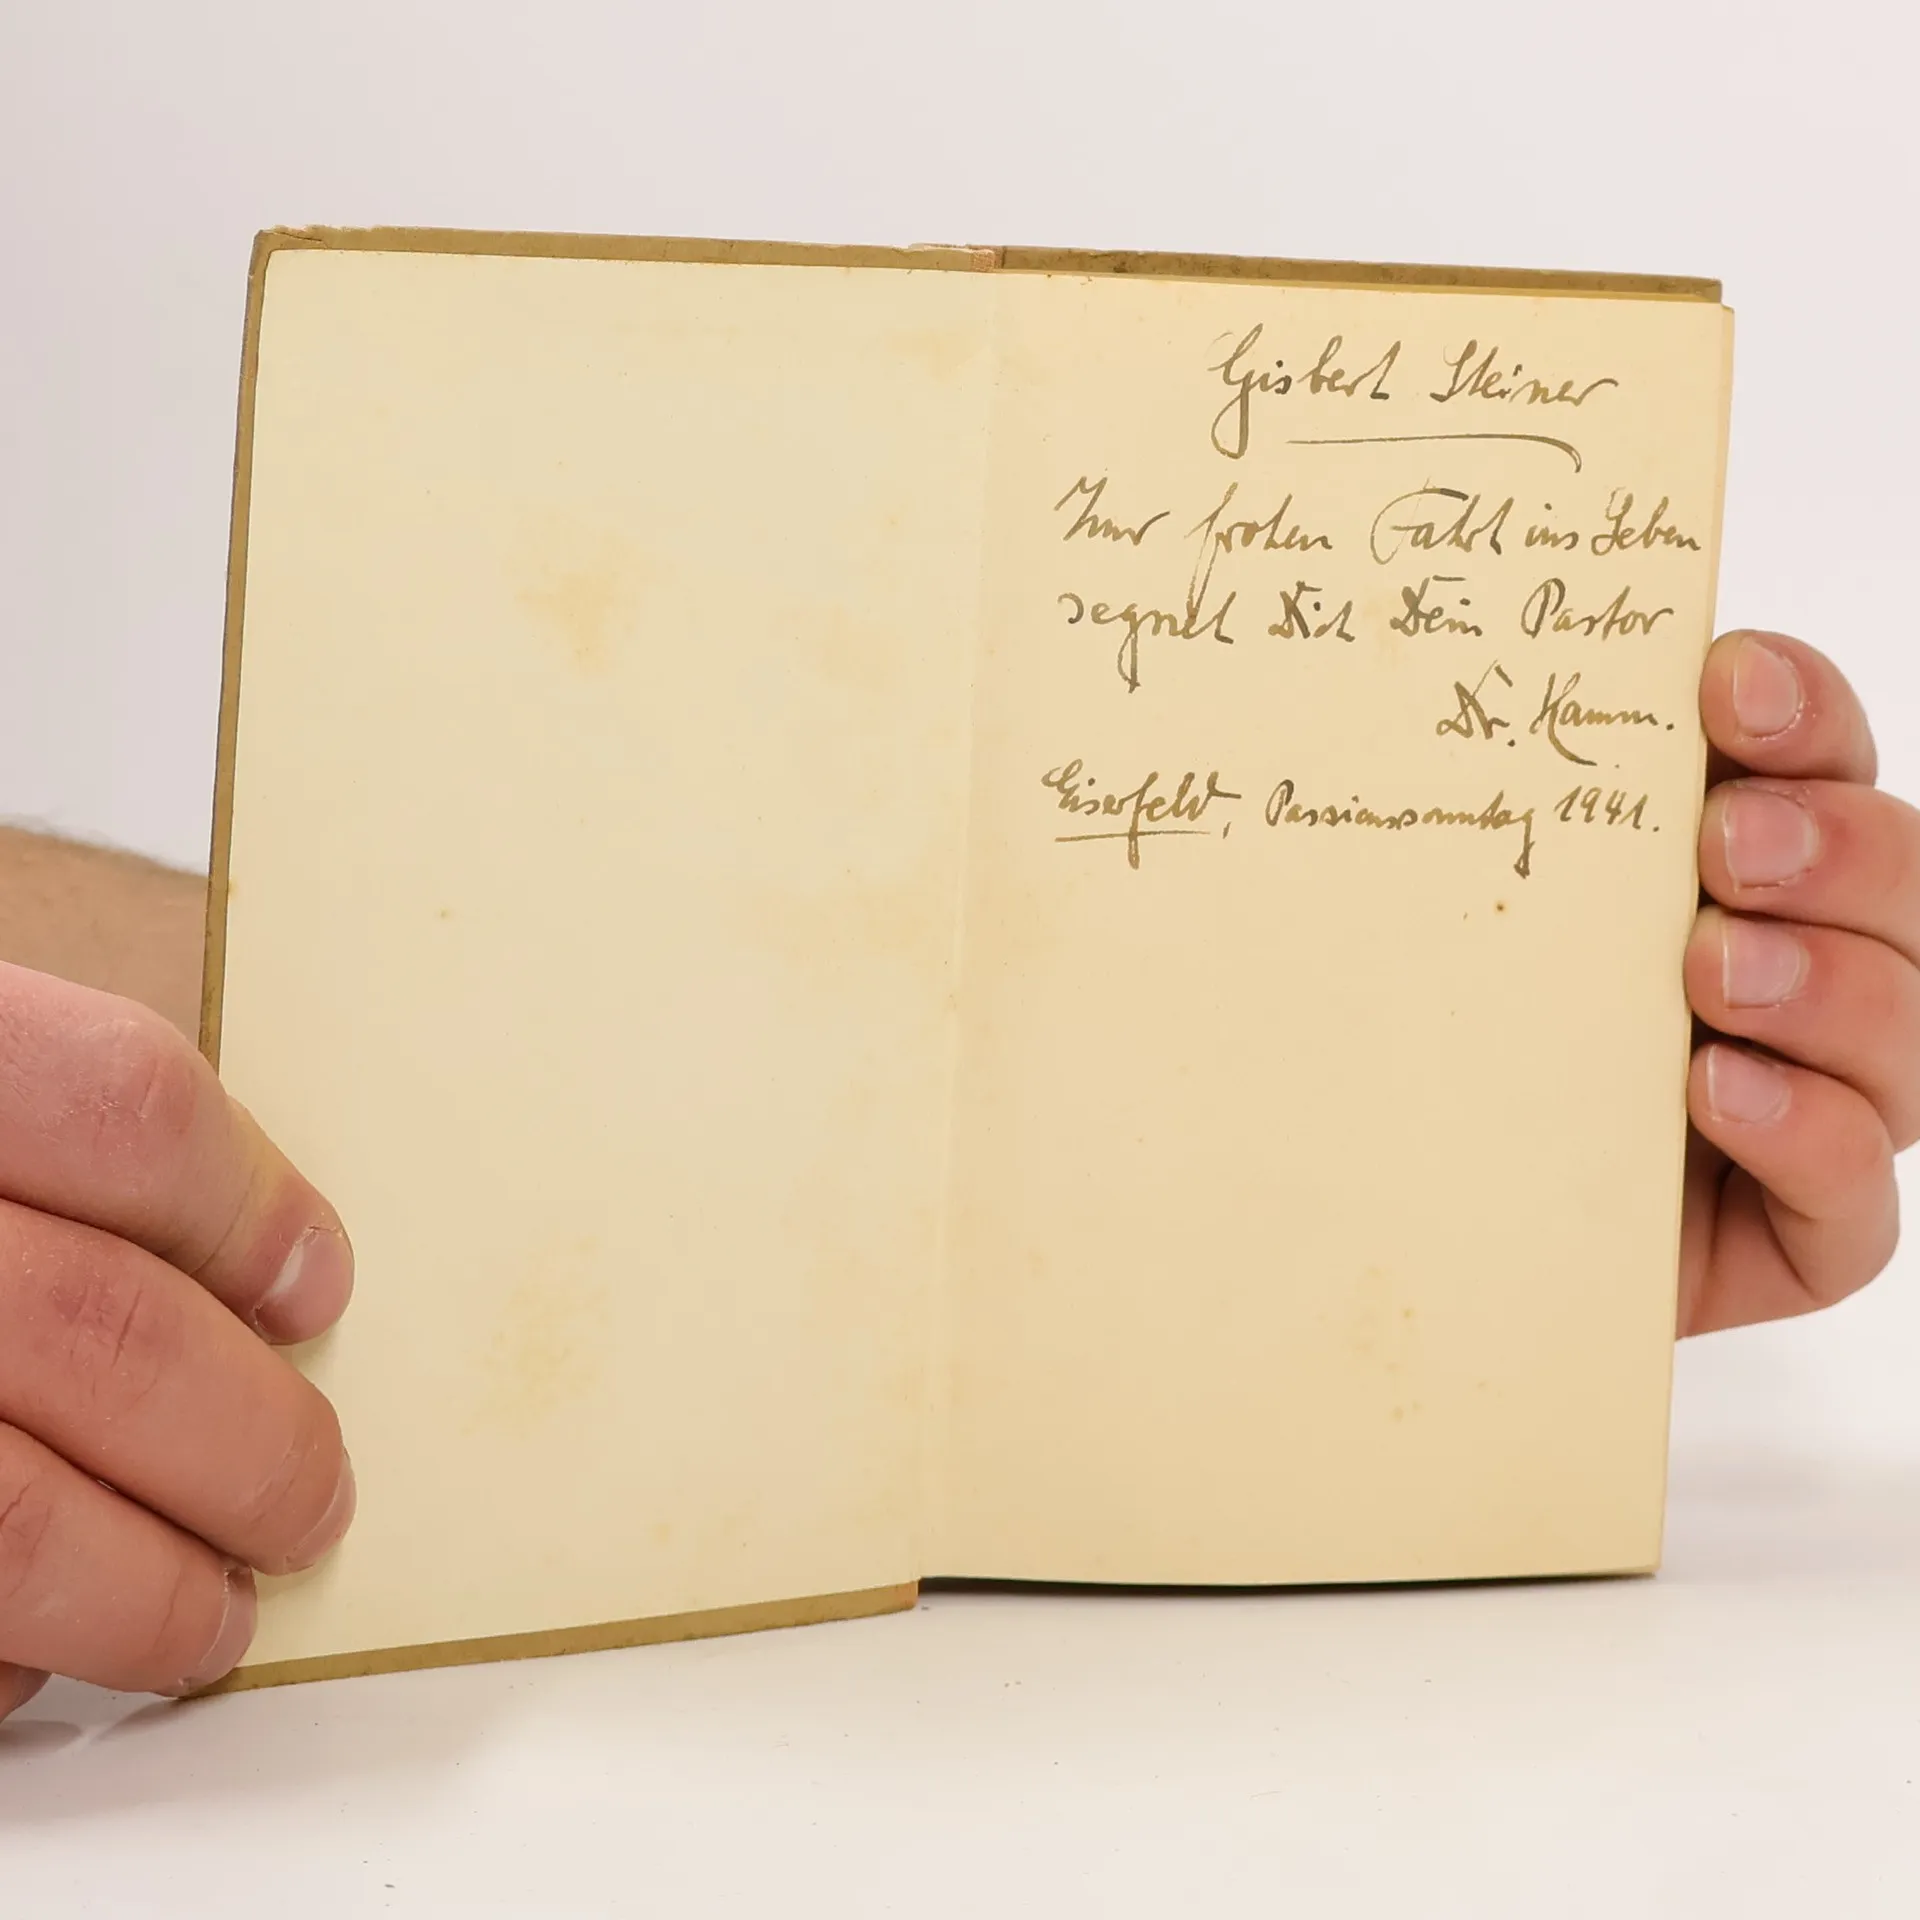 Gisbert Steiner
Zur frohen Fahrt ins Leben
segnet Dich Dein Pastor
Dr. Hamm.
Eiserfeld, Passionssonntag 1941.